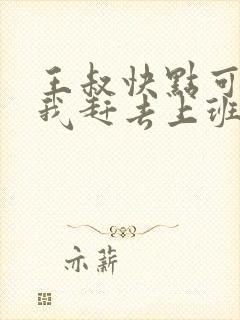 王叔快點可
我赶去上班
亦薪